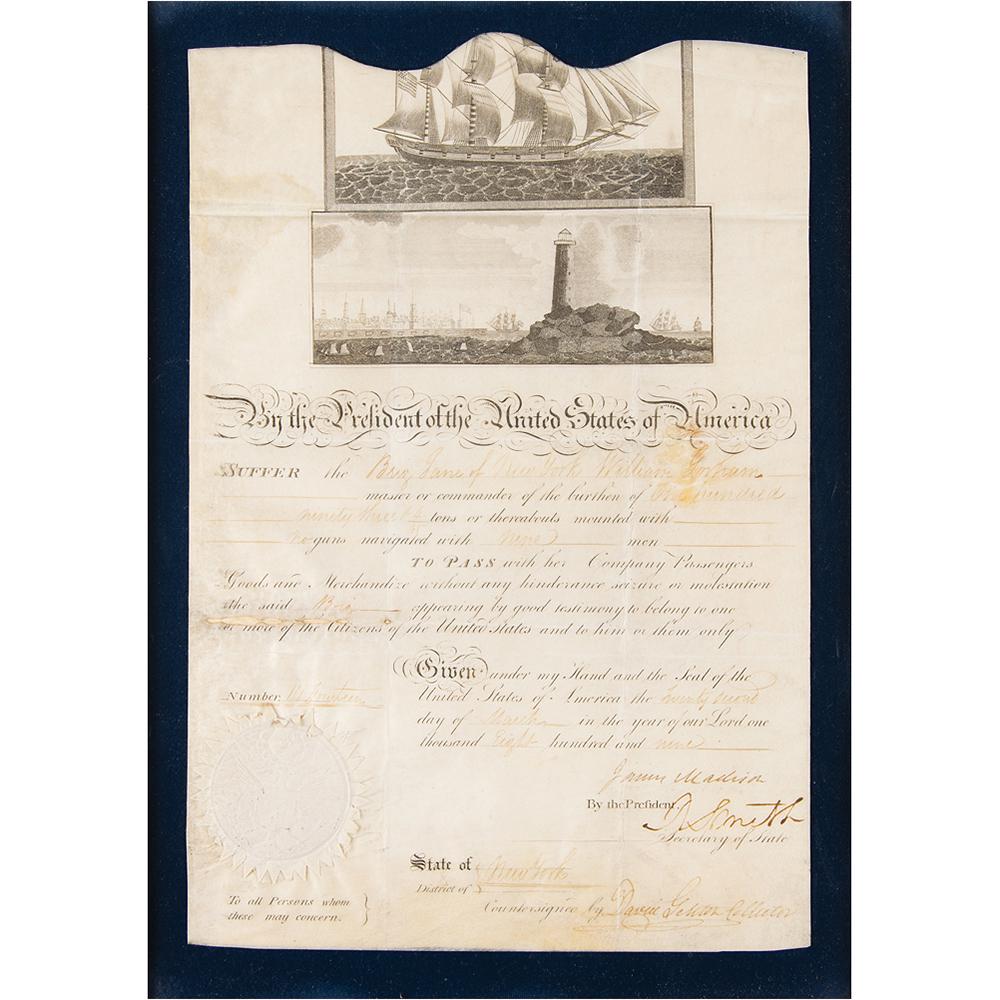 By the President of the United States of America
SUFFER the Brig Jane of New York William
master or commander of the burthen of One hundred
ninety three tons or thereabouts mounted with
no guns navigated with nine men
TO PASS with her Company Passengers
Goods and Merchandize without any hinderance seizure or molestation
the said Brig appearing by good testimony to belong to one
or more of the Citizens of the United States and to him or them only
Given under my Hand and the Seal of the
United States of America the twenty second
Number
day of March in the year of our Lord one
thousand Eight hundred and nine
James Madison
By the President
R Smith
Secretary of State
State of New York
District of
Countersigned by David Gelston Collector
To all Persons whom
these may concern.